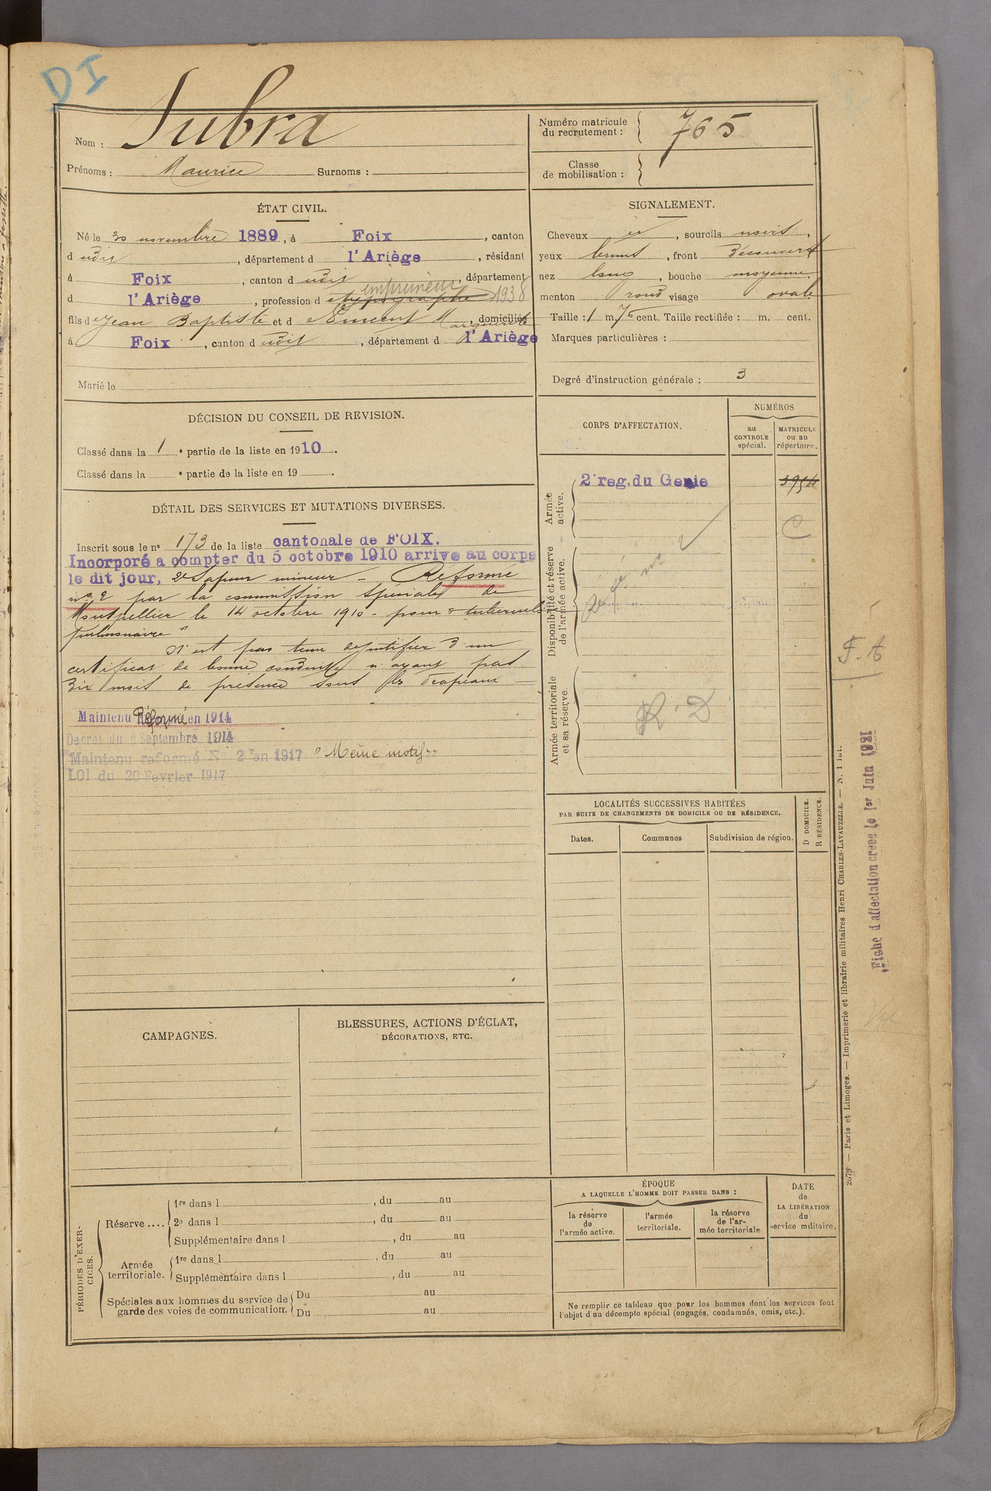 DI
Nom : Subra
Prénoms : Maurice Surnoms :
Numéro matricule du recrutement : 765
Classe de mobilisation :
ÉTAT CIVIL.
Né le 30 novembre 1889, à Foix, canton
d udit, département d l'Ariège, résidant
à Foix, canton d udit, département
d l'Ariège, profession d e typographe imprimeur 1938
fils d e Jean Baptiste et d e Vincent Marguerite, domiciliés
à Foix, canton d udit, département d l'Ariège
Marié le
SIGNALEMENT.
Cheveux et, sourcils noirs,
yeux bruns, front découvert
nez long, bouche moyenne,
menton rond visage ovale
Taille : 1 m 70 cent. Taille rectifiée : m. cent.
Marques particulières :
Degré d'instruction générale : 3
DÉCISION DU CONSEIL DE REVISION.
Classé dans la 1 e partie de la liste en 1910.
Classé dans la e partie de la liste en 19 .
DÉTAIL DES SERVICES ET MUTATIONS DIVERSES.
Inscrit sous le no 173 de la liste cantonale de FOIX.
Incorporé a compter du 5 octobre 1910 arrive au corps
le dit jour, 2e Sapeur mineur - Réformé
no 2 par la commission spéciale de
Montpellier le 14 octobre 1910 - pour "tuberculose
pulmonaire"
N'est pas tenu de justifier d'un
certificat de bonne conduite n'ayant pas
dix mois de présence sous les drapeaux
Maintenu Réformé en 1914
Decret du 9 Septembre 1914
Maintenu reformé No 2 en 1917 "Même motif"
LOI du 20 Fevrier 1917
CORPS D'AFFECTATION.
NUMÉROS
au CONTROLE spécial.
MATRICULE ou au répertoire.
Armée active.
2e reg. du Genie
Disponibilité et réserve de l'armée active.
Armée territoriale et sa réserve.
R. D
F. A
LOCALITÉS SUCCESSIVES HABITÉES
PAR SUITE DE CHANGEMENTS DE DOMICILE OU DE RÉSIDENCE.
Dates.
Communes
Subdivision de région.
D DOMICILE.
R RÉSIDENCE.
CAMPAGNES.
BLESSURES, ACTIONS D'ÉCLAT,
DÉCORATIONS, ETC.
PÉRIODES D'EXERCICES.
Réserve ....
1re dans l , du au
2e dans l , du au
Supplémentaire dans l , du au
Armée territoriale.
1re dans l , du au
Supplémentaire dans l , du au
Spéciales aux hommes du service de garde des voies de communication.
Du au
Du au
ÉPOQUE
A LAQUELLE L'HOMME DOIT PASSER DANS :
la réserve de l'armée active.
l'armée territoriale.
la réserve de l'armée territoriale.
DATE de LA LIBÉRATION du service militaire.
Ne remplir ce tableau que pour les hommes dont les services font
l'objet d'un décompte spécial (engagés, condamnés, omis, etc.).
Paris et Limoges. — Imprimerie et librairie militaires Henri CHARLES-LAVAUZELLE.
Fiche d'affectation créée le 1er Juin 1921